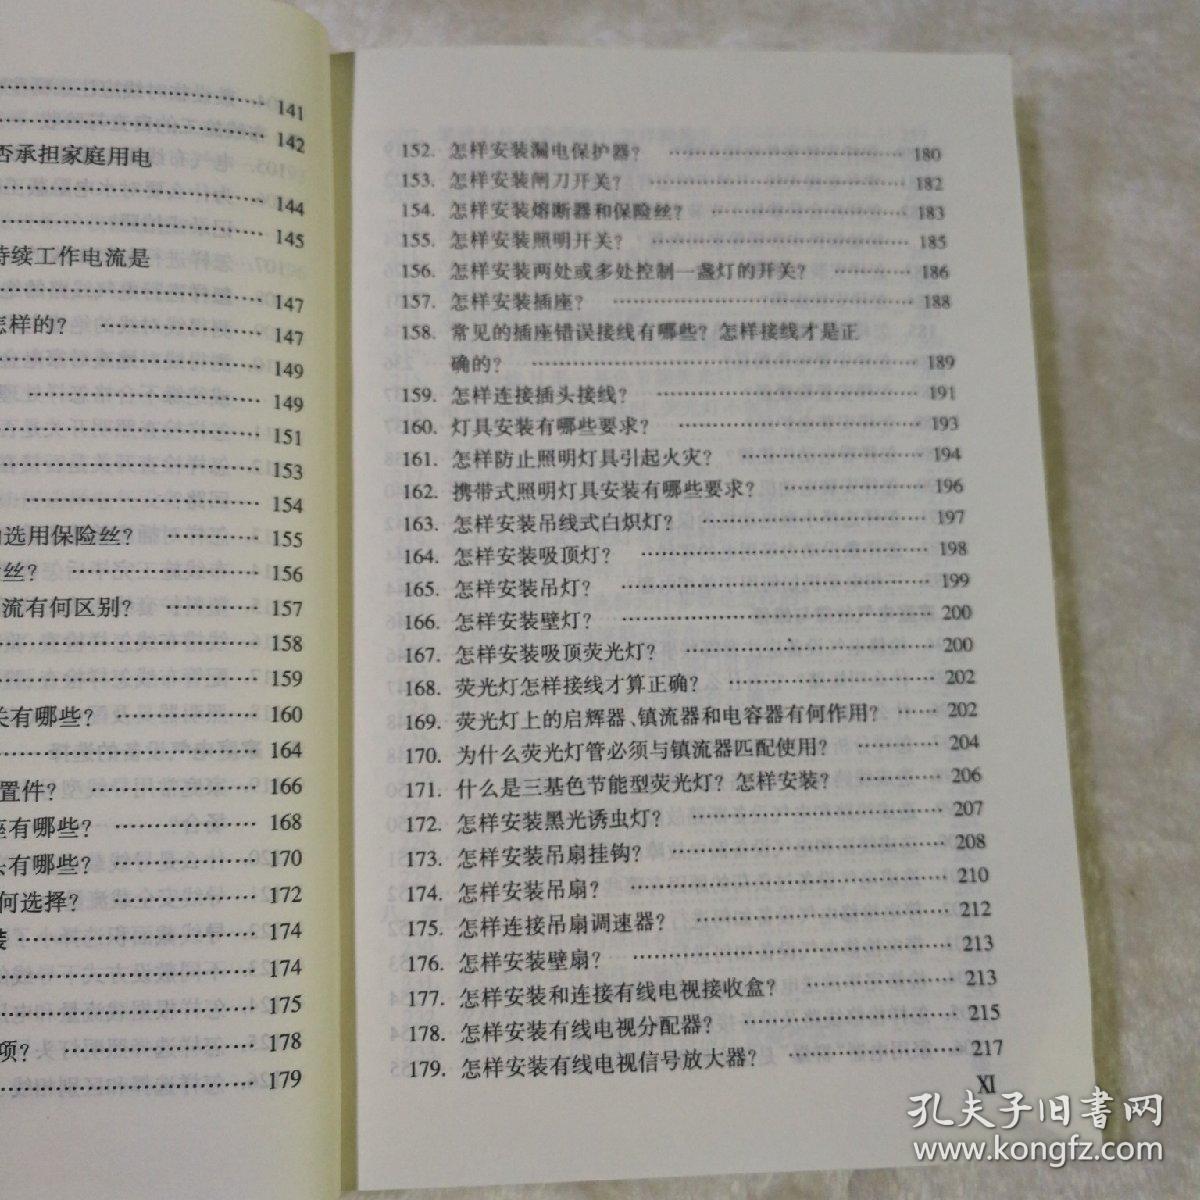 141
142
否承担家庭用电
144
145
持续工作电流是
147
怎样的? 147
149
149
151
153
154
选用保险丝? 155
丝? 156
流有何区别? 157
158
159
关有哪些? 160
164
置件? 166
座有哪些? 168
头有哪些? 170
何选择? 172
装 174
174
175
项? 178
179
152. 怎样安装漏电保护器? 180
153. 怎样安装闸刀开关? 182
154. 怎样安装熔断器和保险丝? 183
155. 怎样安装照明开关? 185
156. 怎样安装两处或多处控制一盏灯的开关? 186
157. 怎样安装插座? 188
158. 常见的插座错误接线有哪些? 怎样接线才是正
确的? 189
159. 怎样连接插头接线? 191
160. 灯具安装有哪些要求? 193
161. 怎样防止照明灯具引起火灾? 194
162. 携带式照明灯具安装有哪些要求? 196
163. 怎样安装吊线式白炽灯? 197
164. 怎样安装吸顶灯? 198
165. 怎样安装吊灯? 199
166. 怎样安装壁灯? 200
167. 怎样安装吸顶荧光灯? 200
168. 荧光灯怎样接线才算正确? 202
169. 荧光灯上的启辉器、镇流器和电容器有何作用? 202
170. 为什么荧光灯管必须与镇流器匹配使用? 204
171. 什么是三基色节能型荧光灯? 怎样安装? 206
172. 怎样安装黑光诱虫灯? 207
173. 怎样安装吊扇挂钩? 208
174. 怎样安装吊扇? 210
175. 怎样连接吊扇调速器? 212
176. 怎样安装壁扇? 213
177. 怎样安装和连接有线电视接收盒? 213
178. 怎样安装有线电视分配器? 215
179. 怎样安装有线电视信号放大器? 217
XI
孔夫子旧书网
www.kongfz.com